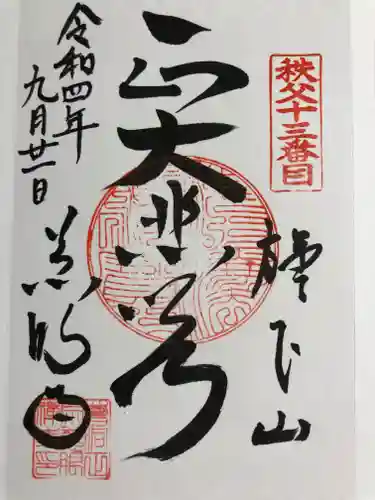 秩父十三番目
旗下山
正大悲閣
令和四年
九月廿一日
慈眼寺